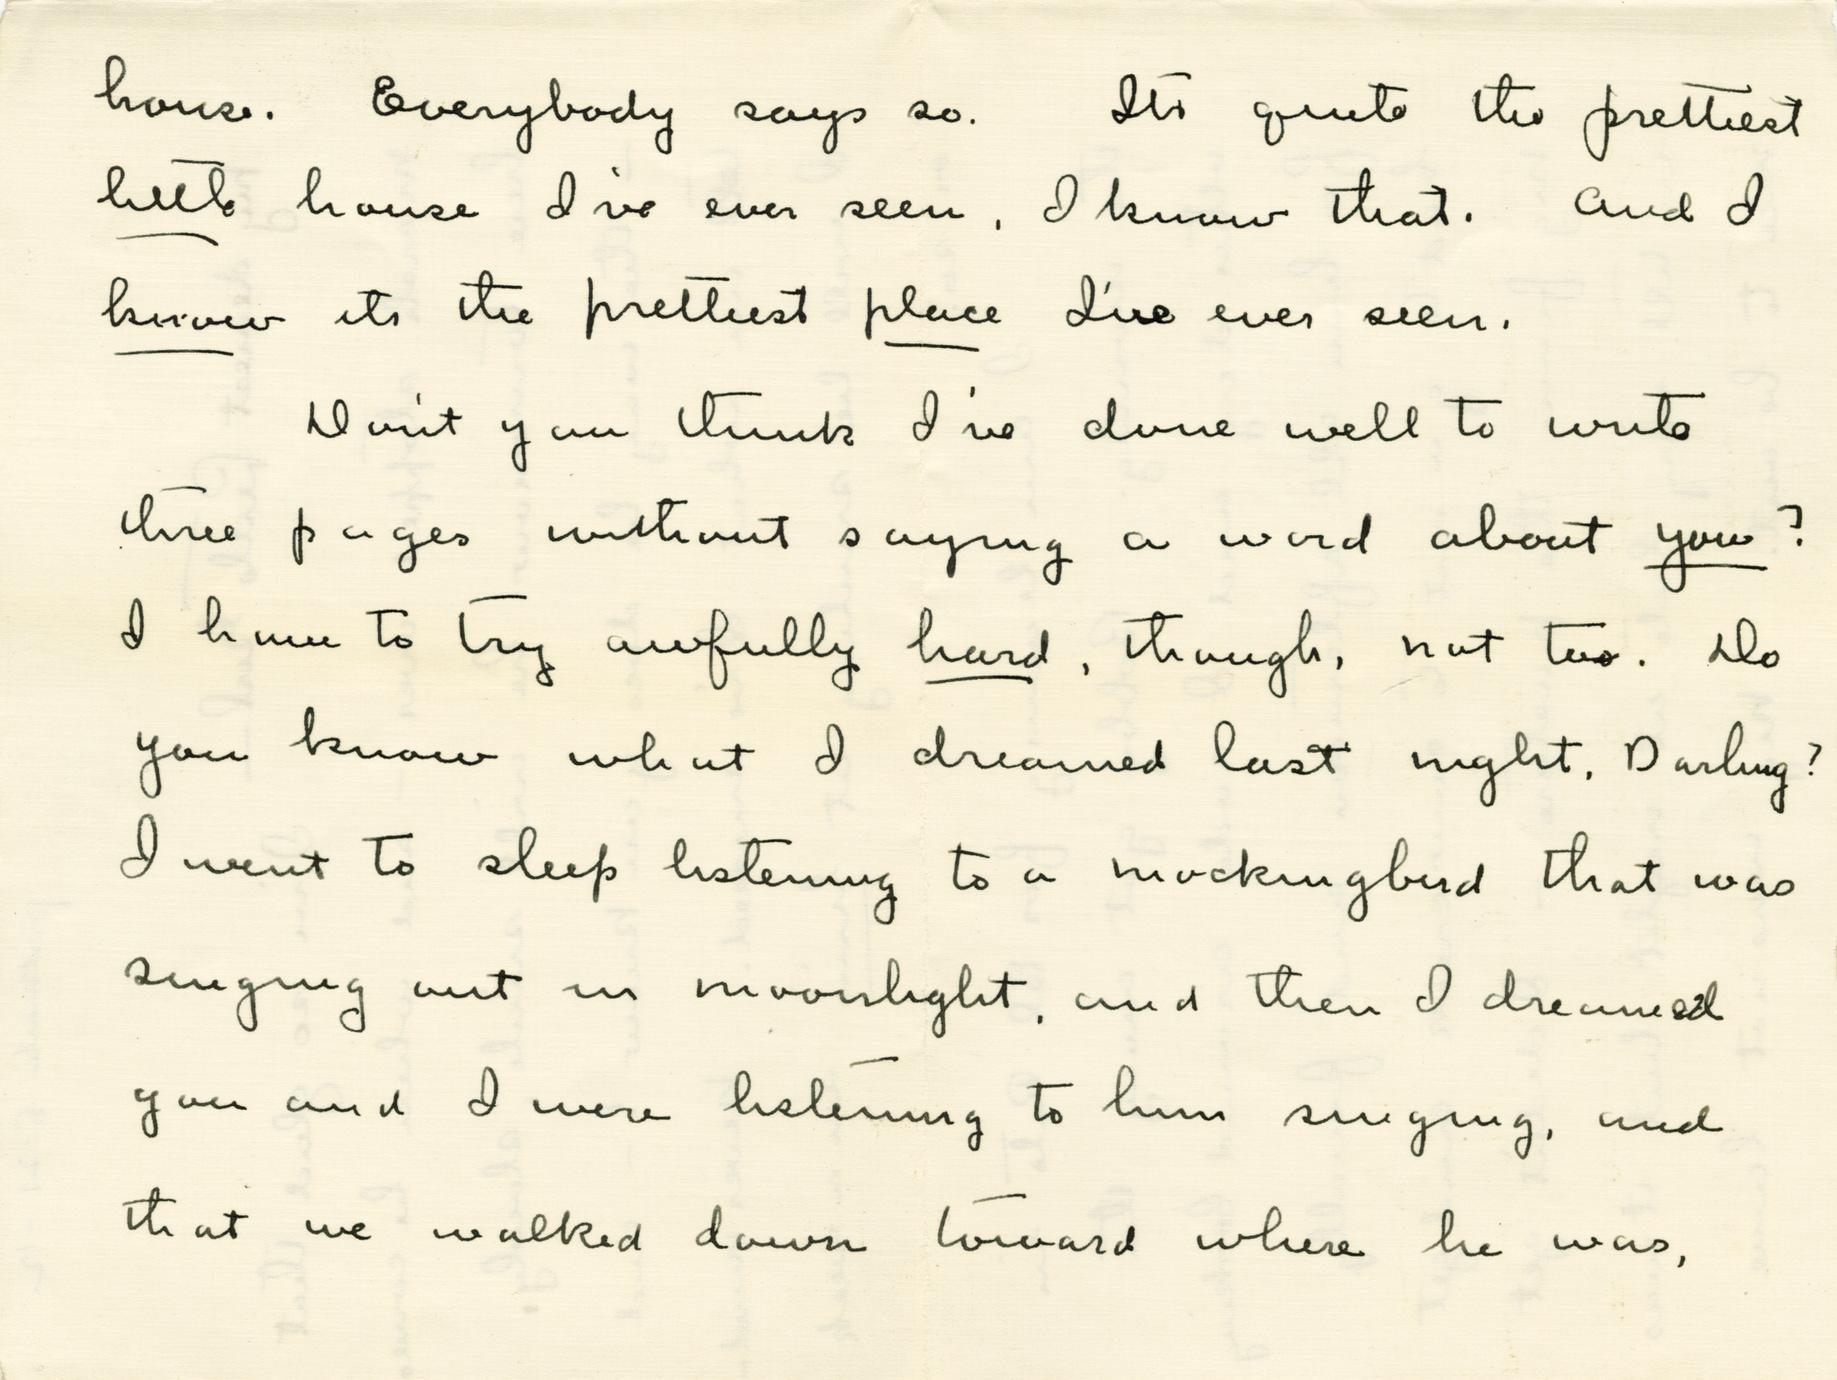 house. Everybody says so. Its quite the prettiest
little house I've ever seen, I know that. And I
know its the prettiest place I've ever seen.
Don't you think I've done well to write
three pages without saying a word about you?
I have to try awfully hard, though, not too. Do
you know what I dreamed last night, Darling?
I went to sleep listening to a mockingbird that was
singing out in moonlight, and then I dreamed
you and I were listening to him singing, and
that we walked down toward where he was,